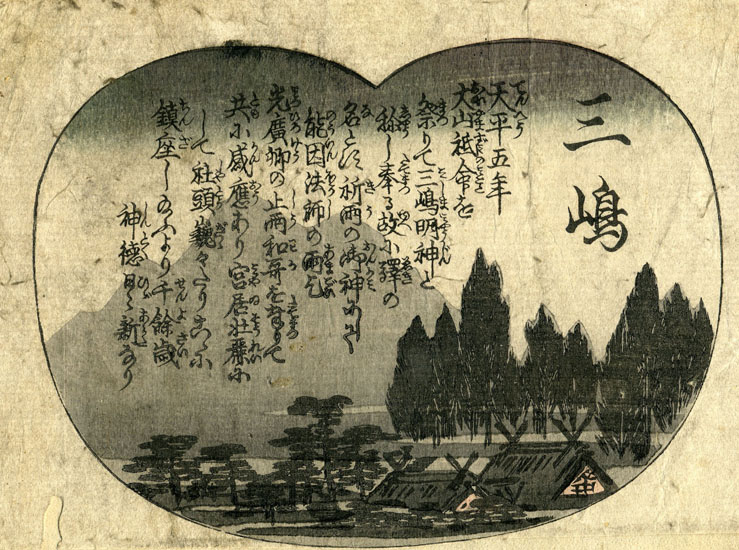 三嶋
天平五年
大山祗命を
祭りて三嶋明神と
称し奉る故に驛の
名とす祈雨の御神にして
能因法師の雨乞
光廣卿の止雨和哥をもて
共に感應あり宮居壮麗に
して社頭巍々たり
鎮座しめふより千餘歳
神徳日々新なり